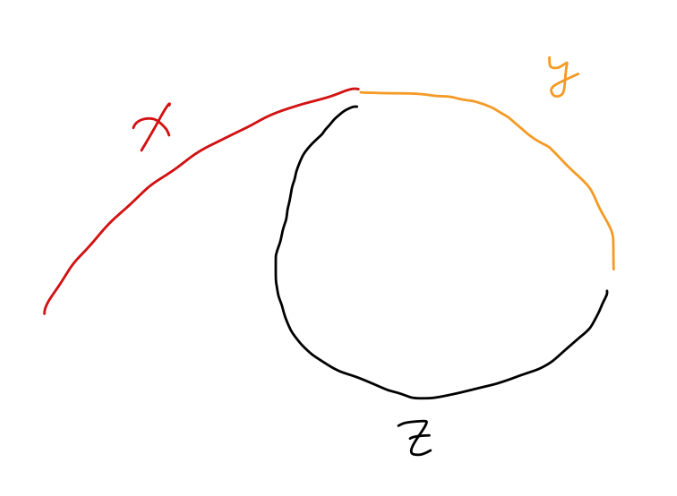 x
y
z